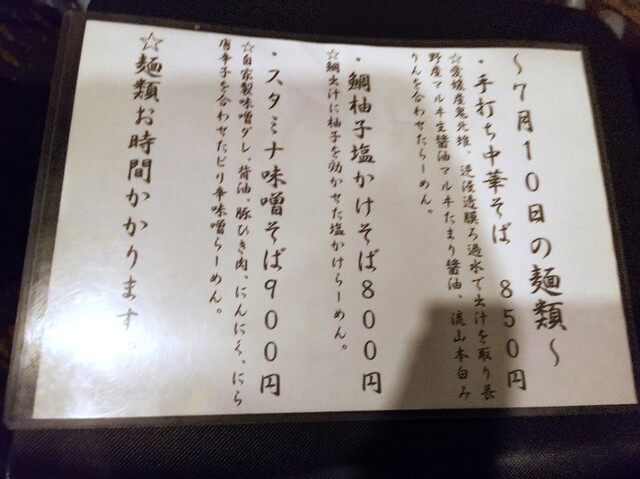 ～７月１０日の麺類～
・手打ち中華そば　８５０円
☆愛媛産鬼北雉、逆浸透膜ろ過水で出汁を取り長
野産マルヰ生醤油マルヰたまり醤油、流山本白み
りんを合わせたらーめん。
・鯛柚子塩かけそば８００円
☆鯛出汁に柚子を効かせた塩かけらーめん。
・スタミナ味噌そば９００円
☆自家製味噌ダレ、背油、豚ひき肉、にんにく、にら
唐辛子を合わせたピリ辛味噌らーめん。
☆麺類お時間かかります。